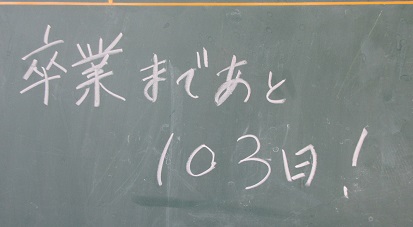 卒業まであと
103日!